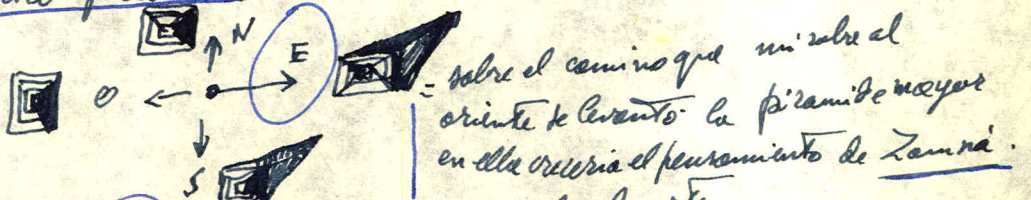 N
E
O
S
= sobre el camino que mi sobre al
oriente se levantó la piramide mayor
en ella creceria el pensamiento de Zamná.